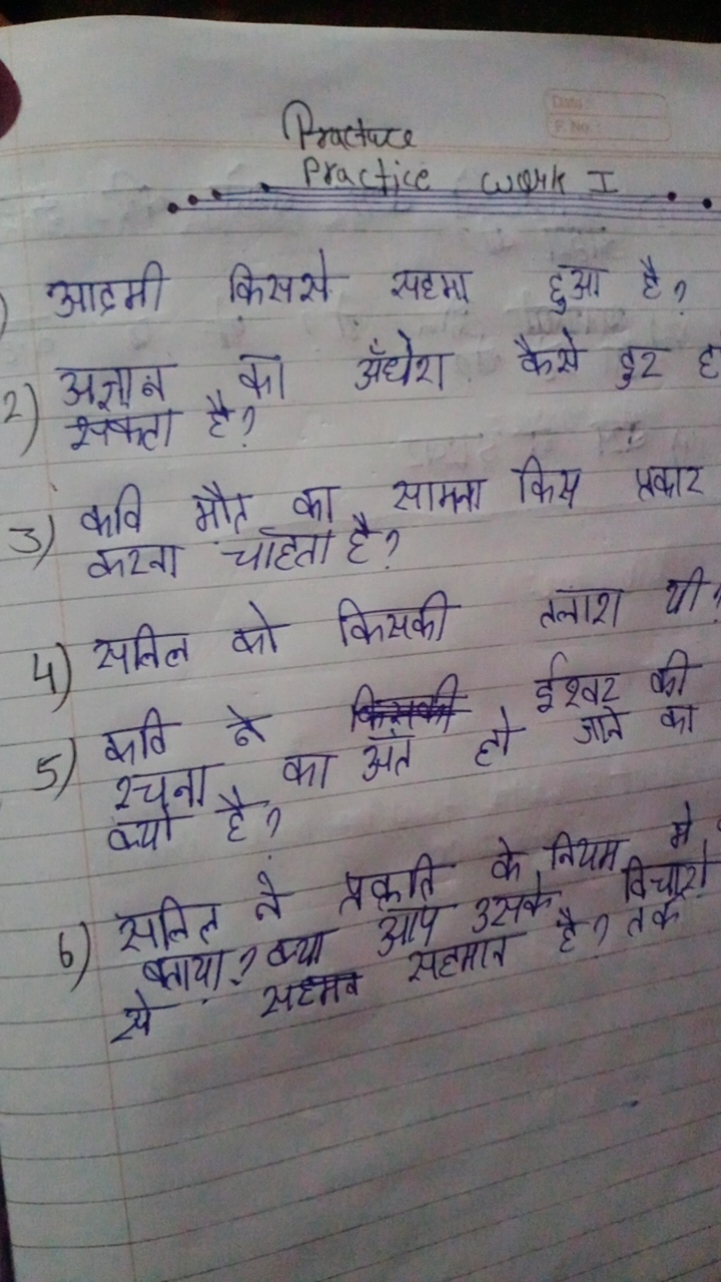 Date :
P. No. :
Practice
Practice work I
आदमी किससे सहमा हुआ है?
2) अज्ञान का अँधेरा कैसे दुर
सकता है?
3) कवि मौत का सामना किस प्रकार
करना चाहता है?
4) सलिल को किसकी तलाश थी?
5) कवि ने ईश्वर की
रचना का अंत हो जाने का
क्यों है?
6) सलिल ने प्रकृति के नियम मे
बताया? क्या आप उसके विचारो
से सहमत सहमात है? तर्क